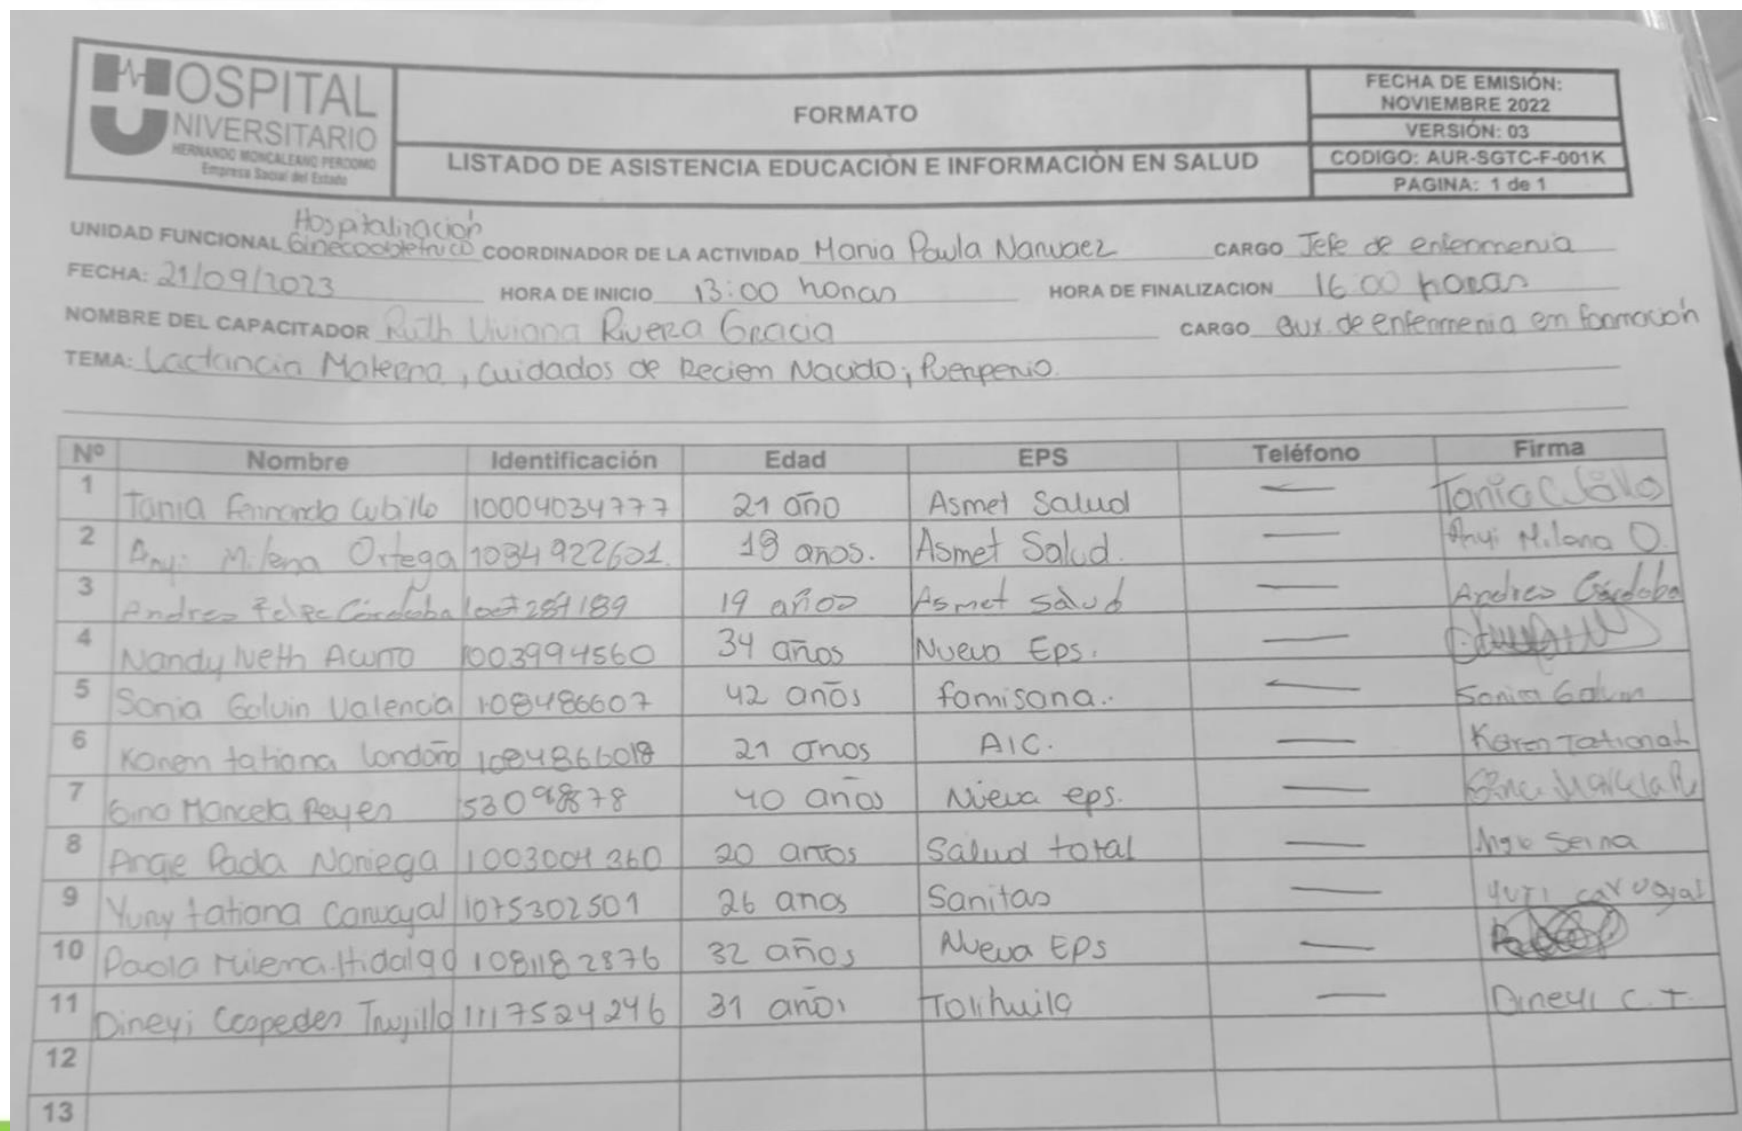 HOSPITAL
UNIVERSITARIO
HERNANDO MONCALEANO PERDOMO
Empresa Social del Estado
FORMATO
LISTADO DE ASISTENCIA EDUCACIÓN E INFORMACIÓN EN SALUD
FECHA DE EMISIÓN:
NOVIEMBRE 2022
VERSIÓN: 03
CODIGO: AUR-SGTC-F-001K
PAGINA: 1 de 1
Hospitalización
UNIDAD FUNCIONAL Ginecoobletrico COORDINADOR DE LA ACTIVIDAD Maria Paula Narvaez CARGO Jefe de enfermeria
FECHA: 21/09/2023 HORA DE INICIO 13:00 horas HORA DE FINALIZACION 16:00 horas
NOMBRE DEL CAPACITADOR Ruth Viviana Rivera Gracia CARGO aux. de enfermeria en formación
TEMA: Lactancia Materna, cuidados de Recien Nacido, Puerperio.
Nº Nombre Identificación Edad EPS Teléfono Firma
1 Tania Fernanda Cubillo 10004034777 21 año Asmet Salud — Tania Cubillo
2 Anyi Milena Ortega 1084922601. 18 anos. Asmet Salud. — Anyi Milena O.
3 Andres Felipe Córdoba 1007284189 19 años Asmet salud — Andres Córdoba
4 Nandy Iveth 1003994560 34 años Nueva Eps. —
5 Sonia Galvin Valencia 108486607 42 años famisana. — Sonia Galvin
6 Karem tatiana Londoño 1084866018 21 anos AIC. — Karen Tatiana
7 Gina Marcela Reyes 53098878 40 años Nueva eps. — Gina Marcela R
8 Angie Noriega 1003004360 20 años Salud total —
9 Yury tatiana Carvajal 1075302501 26 anos Sanitas — Yuri carvajal
10 Paola Milena Hidalgo 1081182876 32 años Nueva EPS —
11 Dineyi Ccspedes Trujillo 1117524246 31 años Tolihuila — Dineyi C.T.
12
13